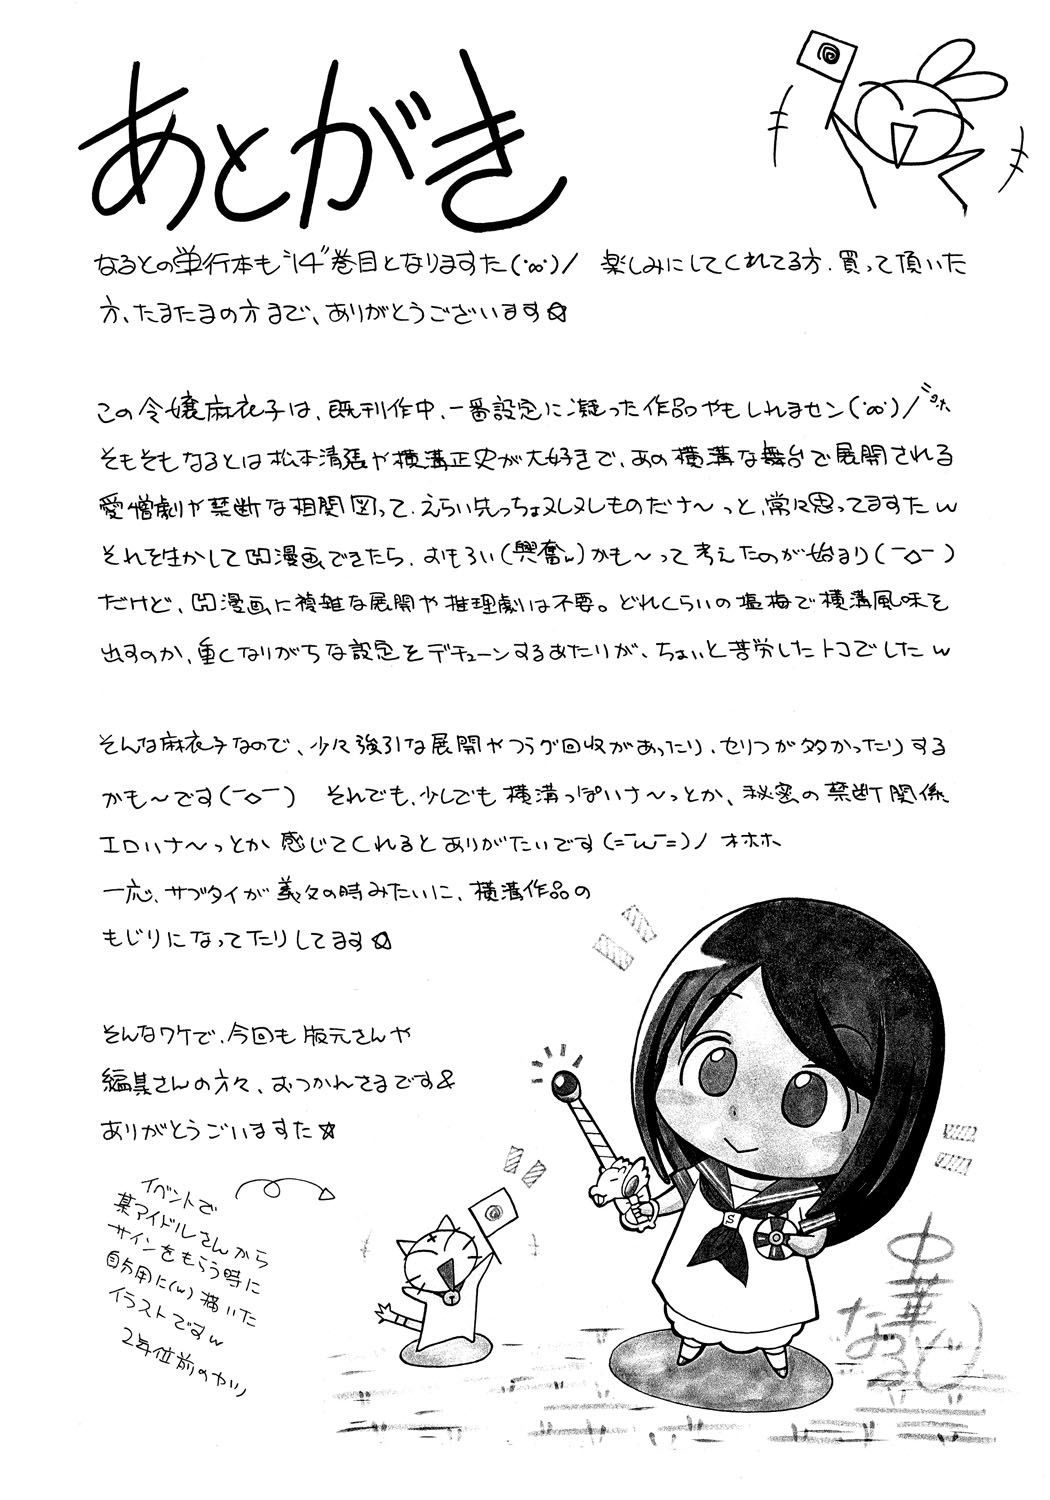 あとがき
なるとの単行本も"14"巻目となりますた(·∞·)/ 楽しみにしてくれてる方、買って頂いた
方、たまたまの方まで、ありがとうございます☆
この令嬢麻衣子は、既刊作中、一番設定に凝った作品やもしれませン(·∞·)/
そもそもなるとは松本清張や横溝正史が大好きで、あの横溝な舞台で展開される
愛憎劇や禁断な相関図って、えらい先っちょヌレヌレものだナ〜っと、常々思ってますたw
それを生かして凹漫画できたら、おもろい(興奮w)かも〜って考えたのが始まり(￣◇￣)
だけど、凹漫画に複雑な展開や推理劇は不要。どれくらいの塩梅で横溝風味を
出すのか、重くなりがちな設定をデチューンするあたりが、ちょいと苦労したトコでしたw
そんな麻衣子なので、少々強引な展開やフラグ回収があったり、セリフが多かったりする
かも〜です(￣◇￣) それでも、少しでも横溝っぽいナ〜っとか、秘密の禁断関係
エロいナ〜っとか感じてくれるとありがたいです(=￣ω￣=)ノ オホホ
一応、サブタイが義々の時みたいに、横溝作品の
もじりになってたりしてます☆
そんなワケで、今回も版元さんや
編集さんの方々、おつかれさまです&
ありがとうございますた☆
イベントで
某アイドルさんから
サインをもらう時に
自分用に(w)描いた
イラストですw
2年位前のヤツ
S
中華
なると